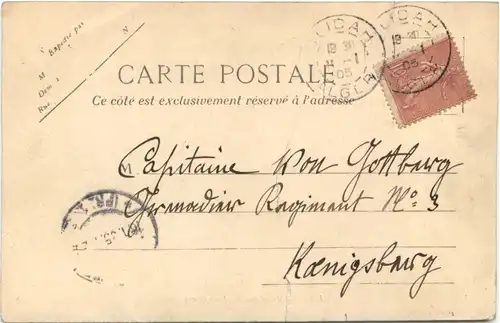 Expédié par
M
Dem
Rue
N
BLIDAH
ALGER
BLIDAH
05
CARTE POSTALE
Ce côté est exclusivement réservé à l'adresse
M Capitaine Von Gottberg
Grenadier Regiment No 3
Kœnigsberg